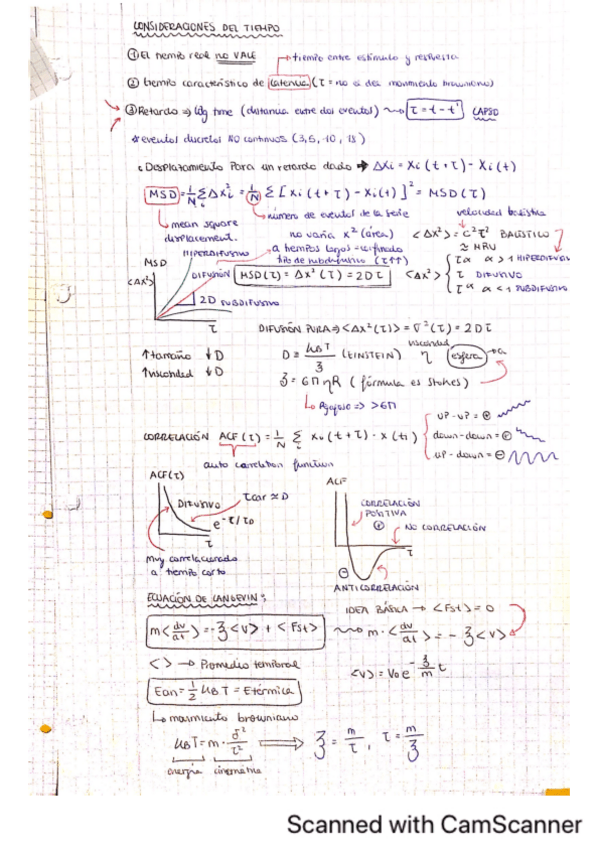 CONSIDERACIONES DEL TIEMPO
① El tiempo real no VALE
tiempo entre estímulo y respuesta
② tiempo característico de latencia (τ = no a des movimiento browniano)
③ Retardo => lag time (distancia entre dos eventos) τ = t - t' LAPSO
* eventos discretos NO continuos (3, 5, 10, 18)
Desplazamiento Para un retardo dado → Δxi = xi (t + τ) - xi (t)
MSD = 1/N Σ Δxi² = 1/N Σ [xi (t + τ) - xi(t)]² = MSD (τ)
mean square displacement.
número de eventos de la serie
no varía x² (área)
velocidad balística
<Δx²> = c²τ² BALÍSTICO
≈ MRU
MSD
<Δx²>
HIPERDIFUSIVO
DIFUSIÓN
2D SUBDIFUSIVO
τ
a tiempos largos = confinado
tipo de subdifusivo (τ↑↑)
MSD(τ) = Δx² (τ) = 2Dτ
<Δx²>
τα α > 1 HIPERDIFUSIVO
τ DIFUSIVO
τα α < 1 SUBDIFUSIVO
DIFUSIÓN PURA => <Δx²(τ)> = σ²(τ) = 2Dτ
↑ tamaño ↓D
↑ viscosidad ↓D
D = kBT / ξ (EINSTEIN)
viscosidad
η
esfera → a
ξ = 6πηR (fórmula es Stokes)
=> > 6π
CORRELACIÓN ACF (τ) = 1/N Σ xi (t + τ) · x (ti)
auto correlation function
up - up = ⊕
down - down = ⊕
up - down = ⊖
ACF(τ)
DIFUSIVO
τcar ≈ D
e^-τ/τD
τ
muy correlacionado a tiempo corto
ACF
CORRELACIÓN POSITIVA
⊕
NO CORRELACIÓN
τ
⊖
ANTICORRELACIÓN
ECUACIÓN DE LANGEVIN:
IDEA BÁSICA → <Fst> = 0
m<dv/dt> = -ξ<v> + <Fst>
m · <dv/dt> = - ξ<v>
< > → Promedio temporal
<v> = V0 e^-ξ/m t
Ean = 1/2 kBT = Etérmica
movimiento browniano
kBT = m · σ²/τ² => ξ = m/τ , τ = m/ξ
energía cinemática
Scanned with CamScanner